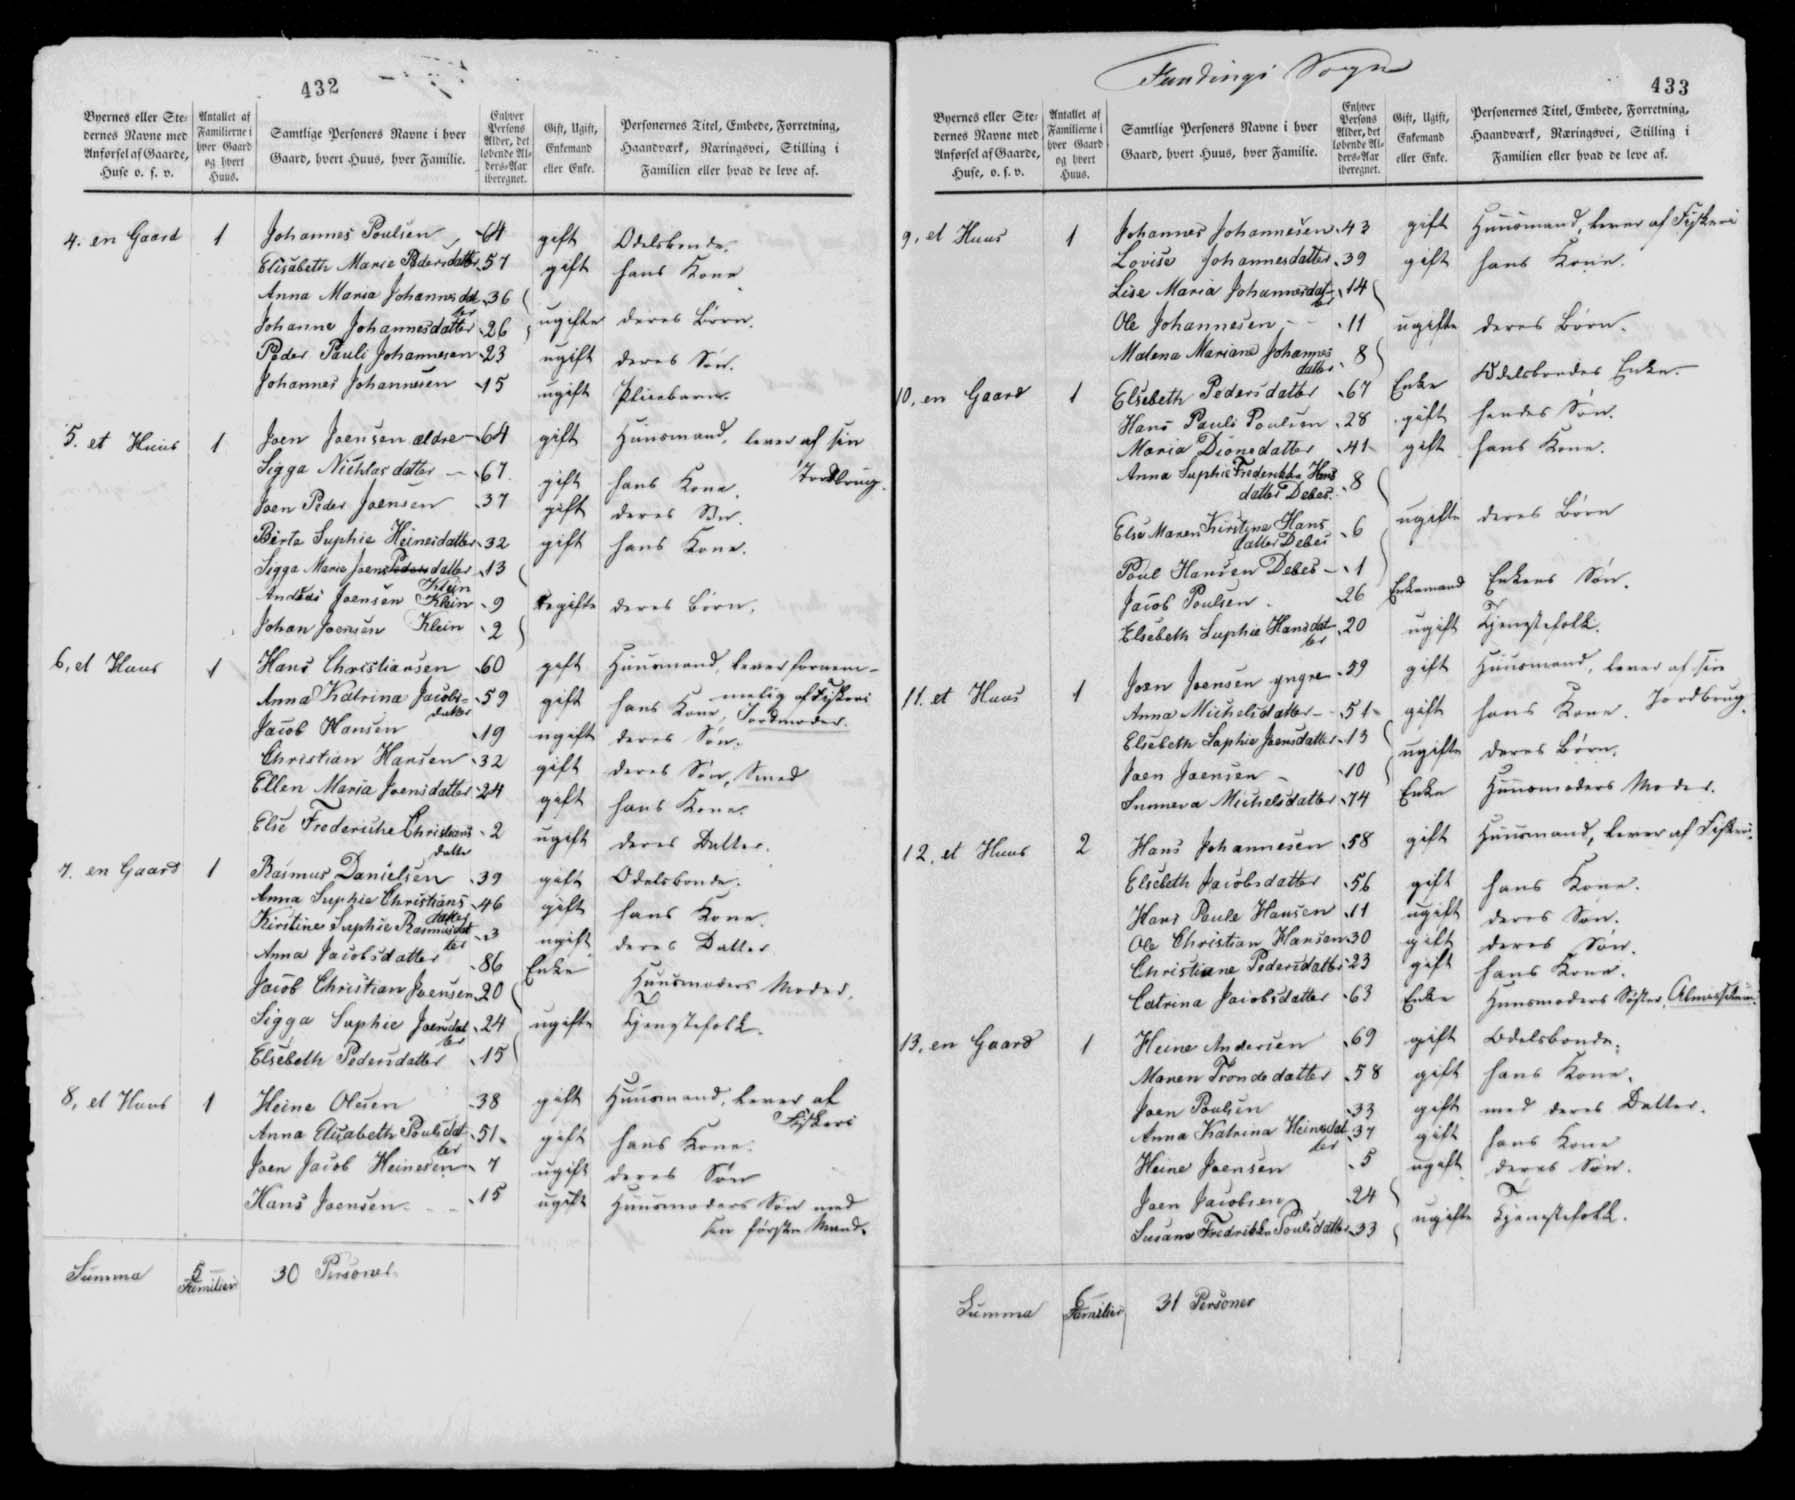 432
Byernes eller Ste-
dernes Navne med
Anførsel af Gaarde,
Huse o. s. v.
Antallet af
Familierne i
hver Gaard
og hvert
Huus.
Samtlige Personers Navne i hver
Gaard, hvert Huus, hver Familie.
Enhver
Persons
Alder, det
løbende Al-
ders-Aar
iberegnet.
Gift, Ugift,
Enkemand
eller Enke.
Personernes Titel, Embede, Forretning,
Haandværk, Næringsvei, Stilling i
Familien eller hvad de leve af.
4. en Gaard 1 Johannes Poulsen 64 gift Odelsbonde.
Elisabeth Marie Pedersdatter 57 gift hans Kone
Anna Maria Johannesdatter 36
Johanne Johannesdatter 26 ugifte deres Børn.
Peder Pauli Johannesen 23 ugift deres Søn.
Johannes Johannesen 15 ugift Pleiebarn
5. et Huus 1 Joen Joensen ældre 64 gift Huusmand, lever af sin
Jordbrug.
Sigga Nichlasdatter 67 gift hans Kone.
Joen Peder Joensen 37 gift deres Søn.
Birte Suphie Heinesdatter 32 gift hans Kone.
Sigga Maria Joens Peders datter Klein 13
Andreas Joensen Klein 9 ugifte deres Børn.
Johan Joensen Klein 2
6, et Huus 1 Hans Christiansen 60 gift Huusmand, lever fornem-
melig af Fiskeri
Anna Katrina Jacobs-
datter 59 gift hans Kone, Jordmoder.
Jacob Hansen 19 ugift deres Søn.
Christian Hansen 32 gift deres Søn, Smed
Ellen Maria Joensdatter 24 gift hans Kone.
Else Frederiche Christians
datter 2 ugift deres Datter.
7. en Gaard 1 Rasmus Danielsen 39 gift Odelsbonde.
Anna Suphie Christians
datter 46 gift hans Kone.
Kirstine Suphie Rasmusdat
ter 3 ugift deres Datter
Anna Jacobsdatter 86 Enke Huusmoders Moder.
Jacob Christian Joensen 20
Sigga Suphie Joensdat
ter 24 ugifte Tjenestefolk.
Elsebeth Pedersdatter 15
8, et Huus 1 Heine Olesen 38 gift Huusmand, lever af
Fiskeri
Anna Elisabeth Poulsdat
ter 51 gift hans Kone.
Joen Jacob Heinesen 7 ugift deres Søn
Hans Joensen 15 ugift Huusmoders Søn med
sin første Mand.
Summa 5 Familier 30 Personer
Fundings Sogn
433
Byernes eller Ste-
dernes Navne med
Anførsel af Gaarde,
Huse, o. s. v.
Antallet af
Familierne i
hver Gaard
og hvert
Huus.
Samtlige Personers Navne i hver
Gaard, hvert Huus, hver Familie.
Enhver
Persons
Alder, det
løbende Al-
ders-Aar
iberegnet.
Gift, Ugift,
Enkemand
eller Enke.
Personernes Titel, Embede, Forretning,
Haandværk, Næringsvei, Stilling i
Familien eller hvad de leve af.
9, et Huus 1 Johannes Johannesen 43 gift Huusmand, lever af Fiskeri
Lovise Johannesdatter 39 gift hans Kone.
Lise Maria Johannesdat
ter 14
Ole Johannesen 11 ugifte deres Børn.
Malena Mariana Johannes
datter 8
10, en Gaard 1 Elsebeth Pedersdatter 67 Enke Odelsbondes Enke.
Hans Pauli Poulsen 28 gift hendes Søn.
Maria Dionedatter 41 gift hans Kone.
Anna Suphie Frederikke Hans
datter Debes 8
Else Maren Kirstine Hans
datter Debes 6 ugifte deres Børn
Poul Hansen Debes 1
Jacob Poulsen 26 Enkemand Enkens Søn.
Elsebeth Suphie Hansdat
ter 20 ugift Tjenestefolk.
11. et Huus 1 Joen Joensen yngre 59 gift Huusmand, lever af sin
Jordbrug.
Anna Michelsdatter 51 gift hans Kone.
Elsebeth Sophie Joensdatter 13
Joen Joensen 10 ugifte deres Børn.
Sunneva Michelsdatter 74 Enke Huusmoders Moder.
12, et Huus 2 Hans Johannesen 58 gift Huusmand, lever af Fiskeri.
Elsebeth Jacobsdatter 56 gift hans Kone.
Hans Paule Hansen 11 ugift deres Søn.
Ole Christian Hansen 30 gift deres Søn.
Christiane Pedersdatter 23 gift hans Kone.
Catrina Jacobsdatter 63 Enke Huusmoders Søster,
13, en Gaard 1 Heine Andersen 69 gift Odelsbonde.
Maren Trondedatter 58 gift hans Kone.
Joen Poulsen 33 gift med deres Datter.
Anna Katrina Heinesdat
ter 37 gift hans Kone
Heine Joensen 5 ugift deres Søn.
Joen Jacobsen 24
Susana Fredrikka Poulsdatter 33 ugifte Tjenestefolk.
Summa 6 Familier 31 Personer